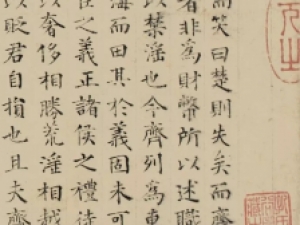 而笑曰楚則失矣而齊
者非為財幣所以述職
以禁淫也今齊列為東
海而田其於義固未可
之義正諸侯之禮徒
以奢侈相勝荒淫相越
以貶君自損也且夫齊